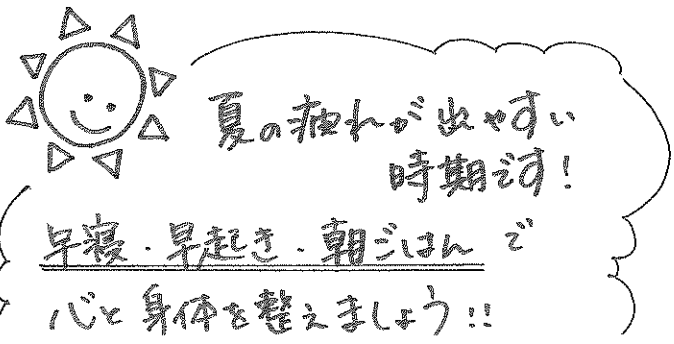 夏の疲れが出やすい
時期です!
早寝・早起き・朝ごはんで
心と身体を整えましょう!!